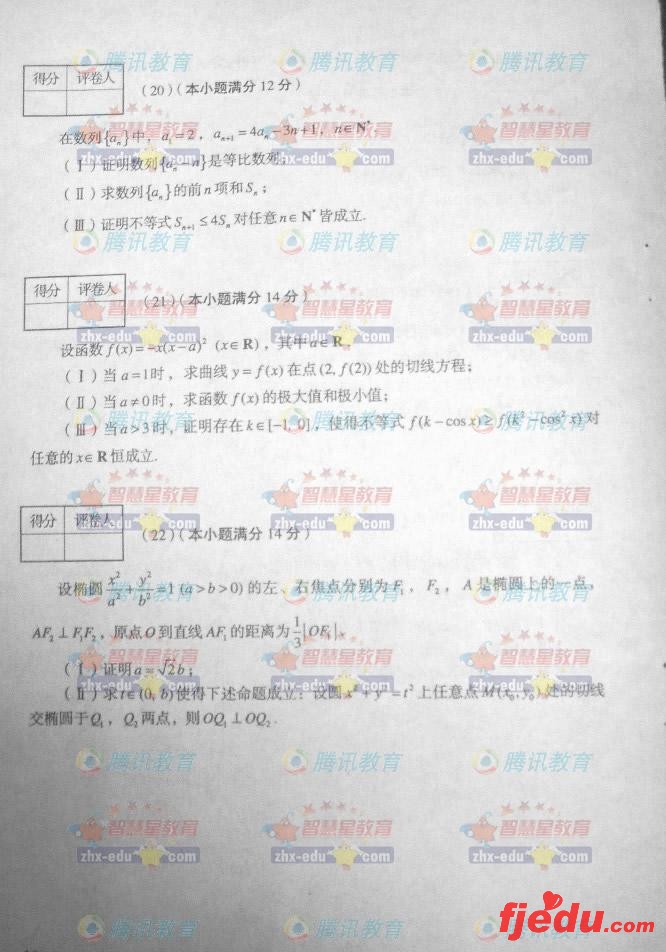 得分 评卷人
(20)(本小题满分12分)
在数列{aₙ}中，a₁=2，aₙ₊₁=4aₙ-3n+1，n∈N*.
(Ⅰ)证明数列{aₙ-n}是等比数列;
(Ⅱ)求数列{aₙ}的前n项和Sₙ;
(Ⅲ)证明不等式Sₙ₊₁≤4Sₙ对任意n∈N*皆成立.
得分 评卷人
(21)(本小题满分14分)
设函数f(x)=-x(x-a)² (x∈R)，其中a∈R.
(Ⅰ)当a=1时，求曲线y=f(x)在点(2, f(2))处的切线方程;
(Ⅱ)当a≠0时，求函数f(x)的极大值和极小值;
(Ⅲ)当a>3时，证明存在k∈[-1, 0]，使得不等式f(k-cosx)≥f(k²-cos²x)对
任意的x∈R恒成立.
得分 评卷人
(22)(本小题满分14分)
设椭圆x²/a²+y²/b²=1(a>b>0)的左、右焦点分别为F₁，F₂，A是椭圆上的一点，
AF₂⊥F₁F₂，原点O到直线AF₁的距离为1/3|OF₁|.
(Ⅰ)证明a=√2b;
(Ⅱ)求t∈(0, b)使得下述命题成立：设圆x²+y²=t²上任意点M(x₀, y₀)处的切线
交椭圆于Q₁，Q₂两点，则OQ₁⊥OQ₂.
腾讯教育
智慧星教育
zhx-edu com
fjedu.com